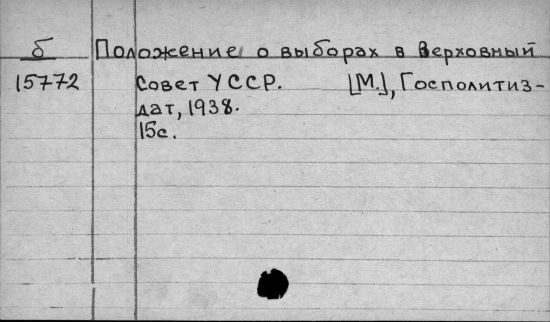 б Положение о выборах в Верховный
15772 Совет УССР. [М.], Госполитиз-
дат, 1938.
15с.